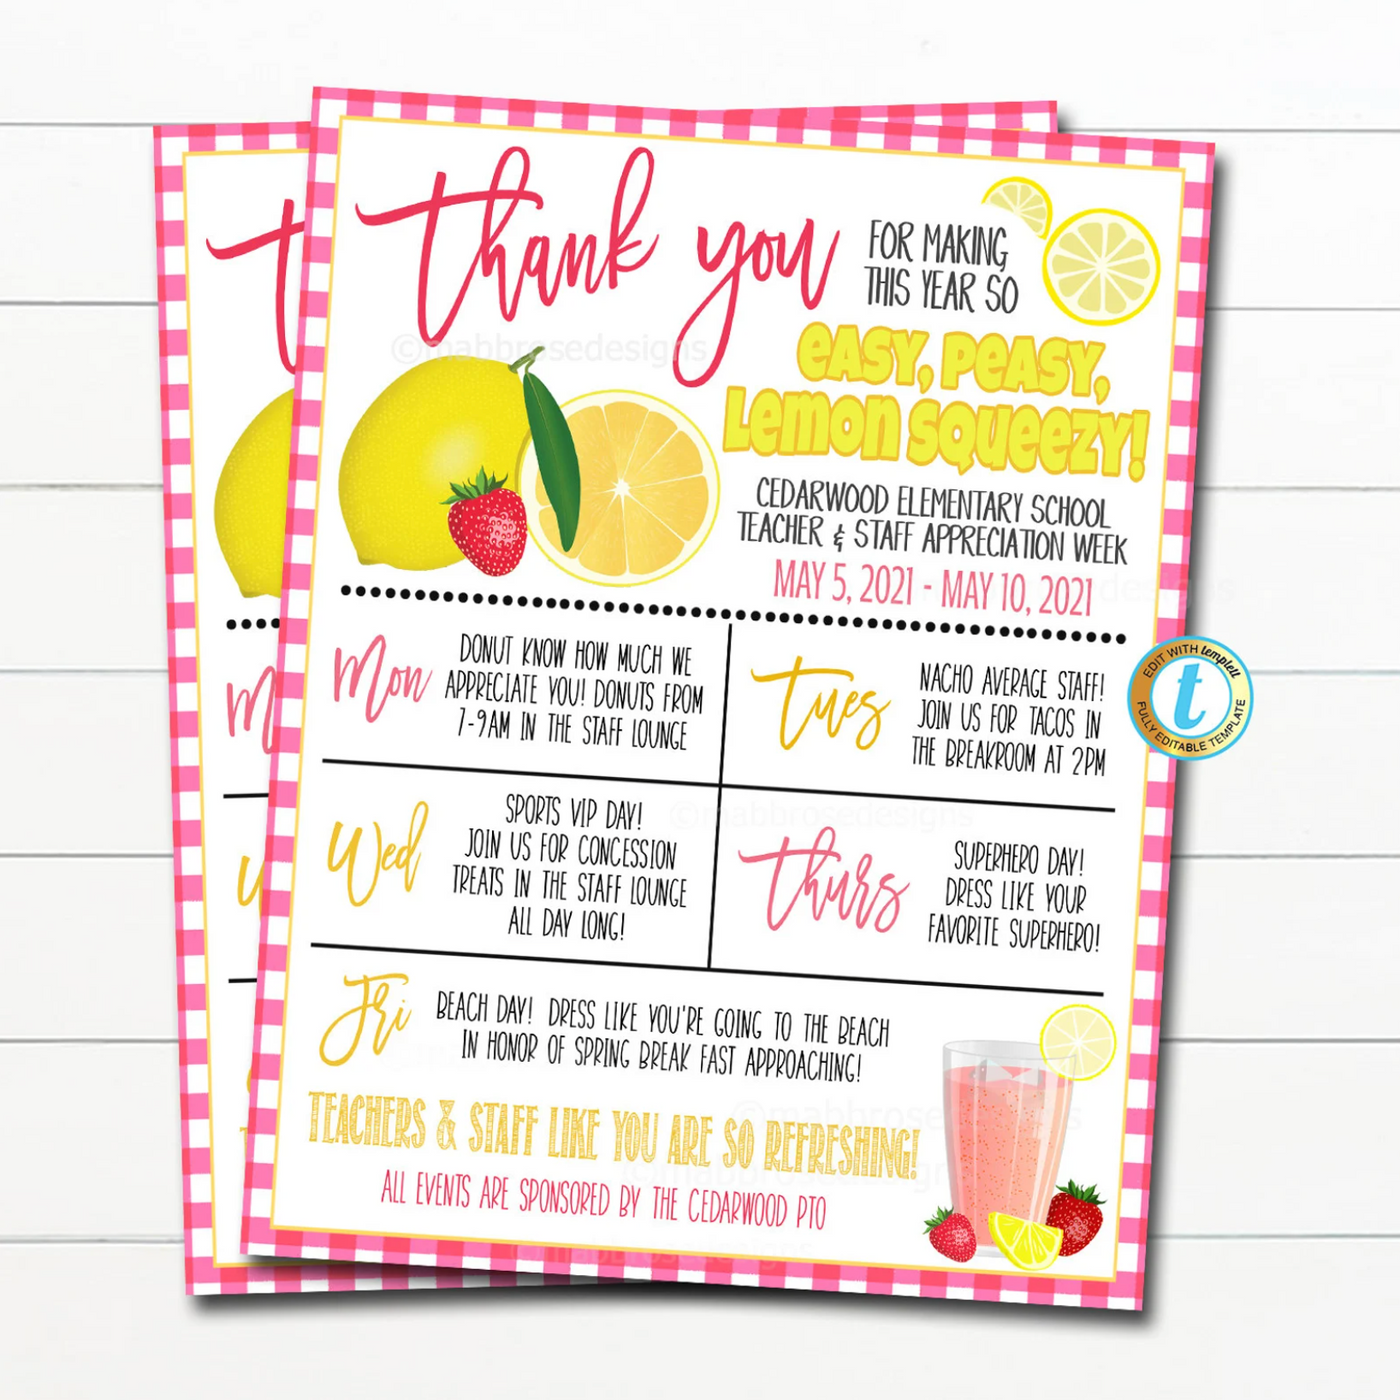 thank you
FOR MAKING
THIS YEAR SO
EASY, PEASY,
LEMON SQUEEZY!
CEDARWOOD ELEMENTARY SCHOOL
TEACHER & STAFF APPRECIATION WEEK
MAY 5, 2021 - MAY 10, 2021
Mon
DONUT KNOW HOW MUCH WE
APPRECIATE YOU! DONUTS FROM
7-9AM IN THE STAFF LOUNGE
tues
NACHO AVERAGE STAFF!
JOIN US FOR TACOS IN
THE BREAKROOM AT 2PM
Wed
SPORTS VIP DAY!
JOIN US FOR CONCESSION
TREATS IN THE STAFF LOUNGE
ALL DAY LONG!
thurs
SUPERHERO DAY!
DRESS LIKE YOUR
FAVORITE SUPERHERO!
Fri
BEACH DAY! DRESS LIKE YOU'RE GOING TO THE BEACH
IN HONOR OF SPRING BREAK FAST APPROACHING!
TEACHERS & STAFF LIKE YOU ARE SO REFRESHING!
ALL EVENTS ARE SPONSORED BY THE CEDARWOOD PTO
EDIT WITH templett
t
FULLY EDITABLE TEMPLATE
©mabbrosedesigns
©mabbrosedesigns
©mabbrosedesigns